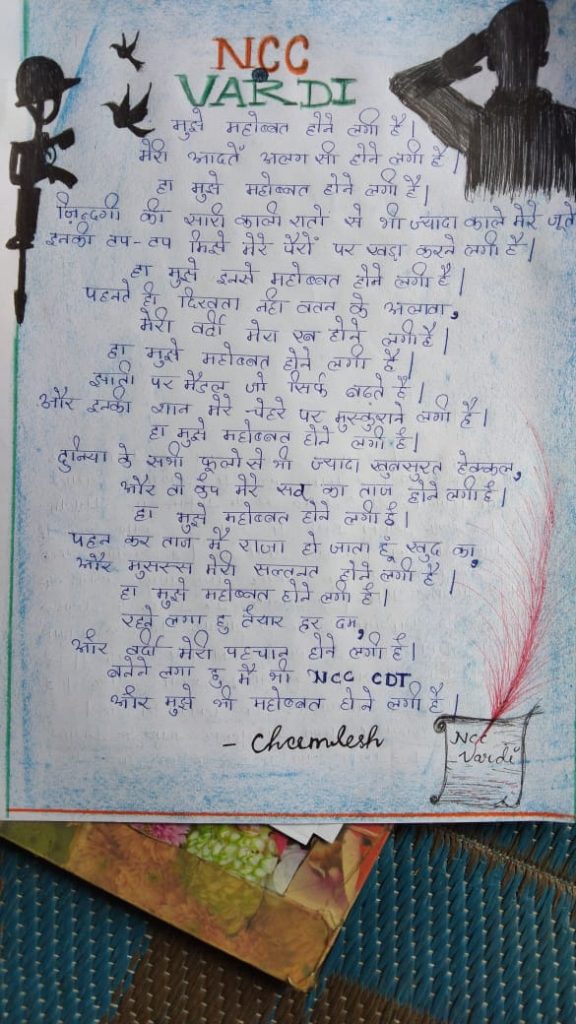 NCC
VARDI
मुझे महोब्बत होने लगी है।
मेरी आदतें अलग सी होने लगी है।
हा मुझे महोब्बत होने लगी है।
जिन्दगी की सारी काली रातो से भी ज्यादा काले मेरे जूते
इनकी टप-टप मिझे मेरे पैरों पर खड़ा करने लगी है।
हा मुझे इनसे महोब्बत होने लगी है।
पहनते ही दिखता नहा वतन के अलावा,
मेरी वर्दी मेरा रब होने लगी है।
हा मुझे महोब्बत होने लगी है।
छाती पर मैडल जो सिर्फ बढ़ते है।
और इनकी शान मेरे चेहरे पर मुस्कुराने लगी है।
हा मुझे महोब्बत होने लगी है।
दुनिया के सभी फूलो से भी ज्यादा खुबसुरत हेक्कल,
और वो कैप मेरे सर का ताज होने लगी है।
हा मुझे महोब्बत होने लगी है।
पहन कर ताज मैं राजा हो जाता हूं खुद का,
और मेरी सल्तनत होने लगी है।
हा मुझे महोब्बत होने लगी है।
रहने लगा हु तैयार हर दम,
और वर्दी मेरी पहचान होने लगी है।
बनेने लगा हु मै भी NCC CDT
और मुझे भी महोब्बत होने लगी है।
- Chamlesh
NCC
Vardi